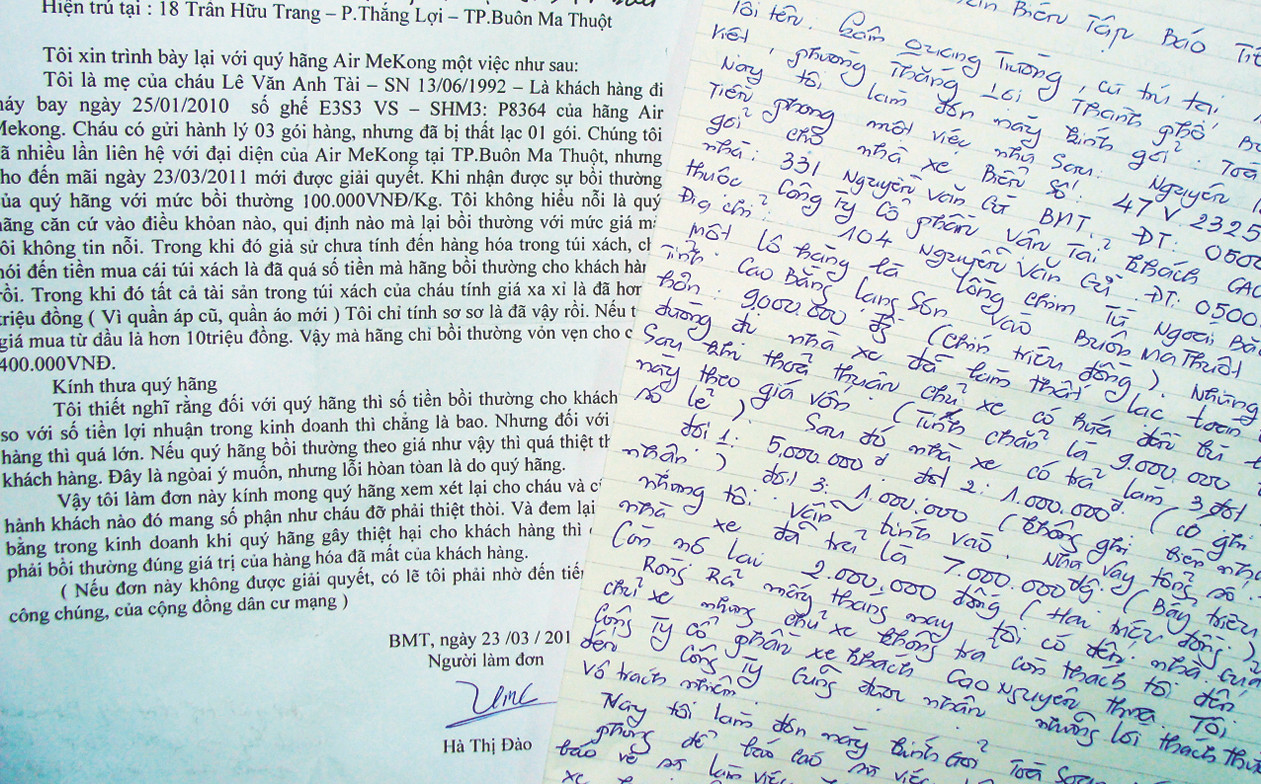 Hiện trú tại : 18 Trần Hữu Trang – P.Thắng Lợi – TP.Buôn Ma Thuột
Tôi xin trình bày lại với quý hãng Air MeKong một việc như sau:
Tôi là mẹ của cháu Lê Văn Anh Tài – SN 13/06/1992 – Là khách hàng đi
máy bay ngày 25/01/2010 số ghế E3S3 VS – SHM3: P8364 của hãng Air
Mekong. Cháu có gửi hành lý 03 gói hàng, nhưng đã bị thất lạc 01 gói. Chúng tôi
ã nhiều lần liên hệ với đại diện của Air MeKong tại TP.Buôn Ma Thuột, nhưng
ho đến mãi ngày 23/03/2011 mới được giải quyết. Khi nhận được sự bồi thường
ủa quý hãng với mức bồi thường 100.000VNĐ/Kg. Tôi không hiểu nỗi là quý
ãng căn cứ vào điều khỏan nào, qui định nào mà lại bồi thường với mức giá m
ôi không tin nỗi. Trong khi đó giả sử chưa tính đến hàng hóa trong túi xách, ch
nói đến tiền mua cái túi xách là đã quá số tiền mà hãng bồi thường cho khách hàn
rồi. Trong khi đó tất cả tài sản trong túi xách của cháu tính giá xa xỉ là đã hơn
triệu đồng ( Vì quần áp cũ, quần áo mới ) Tôi chỉ tính sơ sơ là đã vậy rồi. Nếu t
giá mua từ dầu là hơn 10triệu đồng. Vậy mà hãng chỉ bồi thường vỏn vẹn cho c
400.000VNĐ.
Kính thưa quý hãng
Tôi thiết nghĩ rằng đối với quý hãng thì số tiền bồi thường cho khách
so với số tiền lợi nhuận trong kinh doanh thì chẳng là bao. Nhưng đối với
hàng thì quá lớn. Nếu quý hãng bồi thường theo giá như vậy thì quá thiệt th
khách hàng. Đây là ngòai ý muốn, nhưng lỗi hòan tòan là do quý hãng.
Vậy tôi làm đơn này kính mong quý hãng xem xét lại cho cháu và c
hành khách nào đó mang số phận như cháu đỡ phải thiệt thòi. Và đem lại
bằng trong kinh doanh khi quý hãng gây thiệt hại cho khách hàng thì
phải bồi thường đúng giá trị của hàng hóa đã mất của khách hàng.
( Nếu đơn này không được giải quyết, có lẽ tôi phải nhờ đến tiến
công chúng, của cộng đồng dân cư mạng )
BMT, ngày 23 /03 / 201
Người làm đơn
Hà Thị Đào
Biên Tập Báo Ti
Tôi tên: Cầm Quang Trường, cư trú tại
Kiệt, phường Thắng Lợi Thành phố B
Nay tôi làm đơn này kính gởi: Toà
Tiền phong một việc như sau: Nguyên
gởi cho nhà xe Biển số: 47V 2325
nhà: 331 Nguyễn Văn Cừ BMT. ĐT: 0500
thuộc Công Ty Cổ phần vận Tải khách Cao
Địa chỉ: 104 Nguyễn Văn Cừ. ĐT: 0500.
một lô hàng là lông chim Từ Ngoài Bắ
Tỉnh Cao Bằng Lạng Sơn vào Buôn Ma Thuột
hơn: 9000.000 đ (chín triệu đồng). Nhưng
đường đi nhà xe đã làm thất lạc toàn
Sau khi thoả thuận chủ xe có hứa đền bù
này theo giá vốn (Tính chẵn là 9.000.000
số lẻ) Sau đó nhà xe có trả làm 3 đợt
đợt 1: 5.000.000đ đợt 2: 1.000.000đ. (có ghi
nhận) đợt 3: 1.000.000 (không ghi biên nhận
nhưng tôi vẫn tính vào. Như vậy tổng số
nhà xe đã trả là 7.000.000đg. (Bảy triệu
Còn nợ lại 2.000.000 đồng (Hai triệu đồng.)
Ròng Rã mấy tháng nay tôi có đến nhà
chủ xe nhưng chủ xe không trả còn thách tôi đến
Công Ty cổ phần xe khách Cao Nguyên thưa. Tôi
đến Công Ty cũng được nhận những lời thách thứ
vô trách nhiệm.
Nay tôi làm đơn này kính gởi Toà Soạn
phòng để báo cáo sự việc
báo về sự làm việc
xe